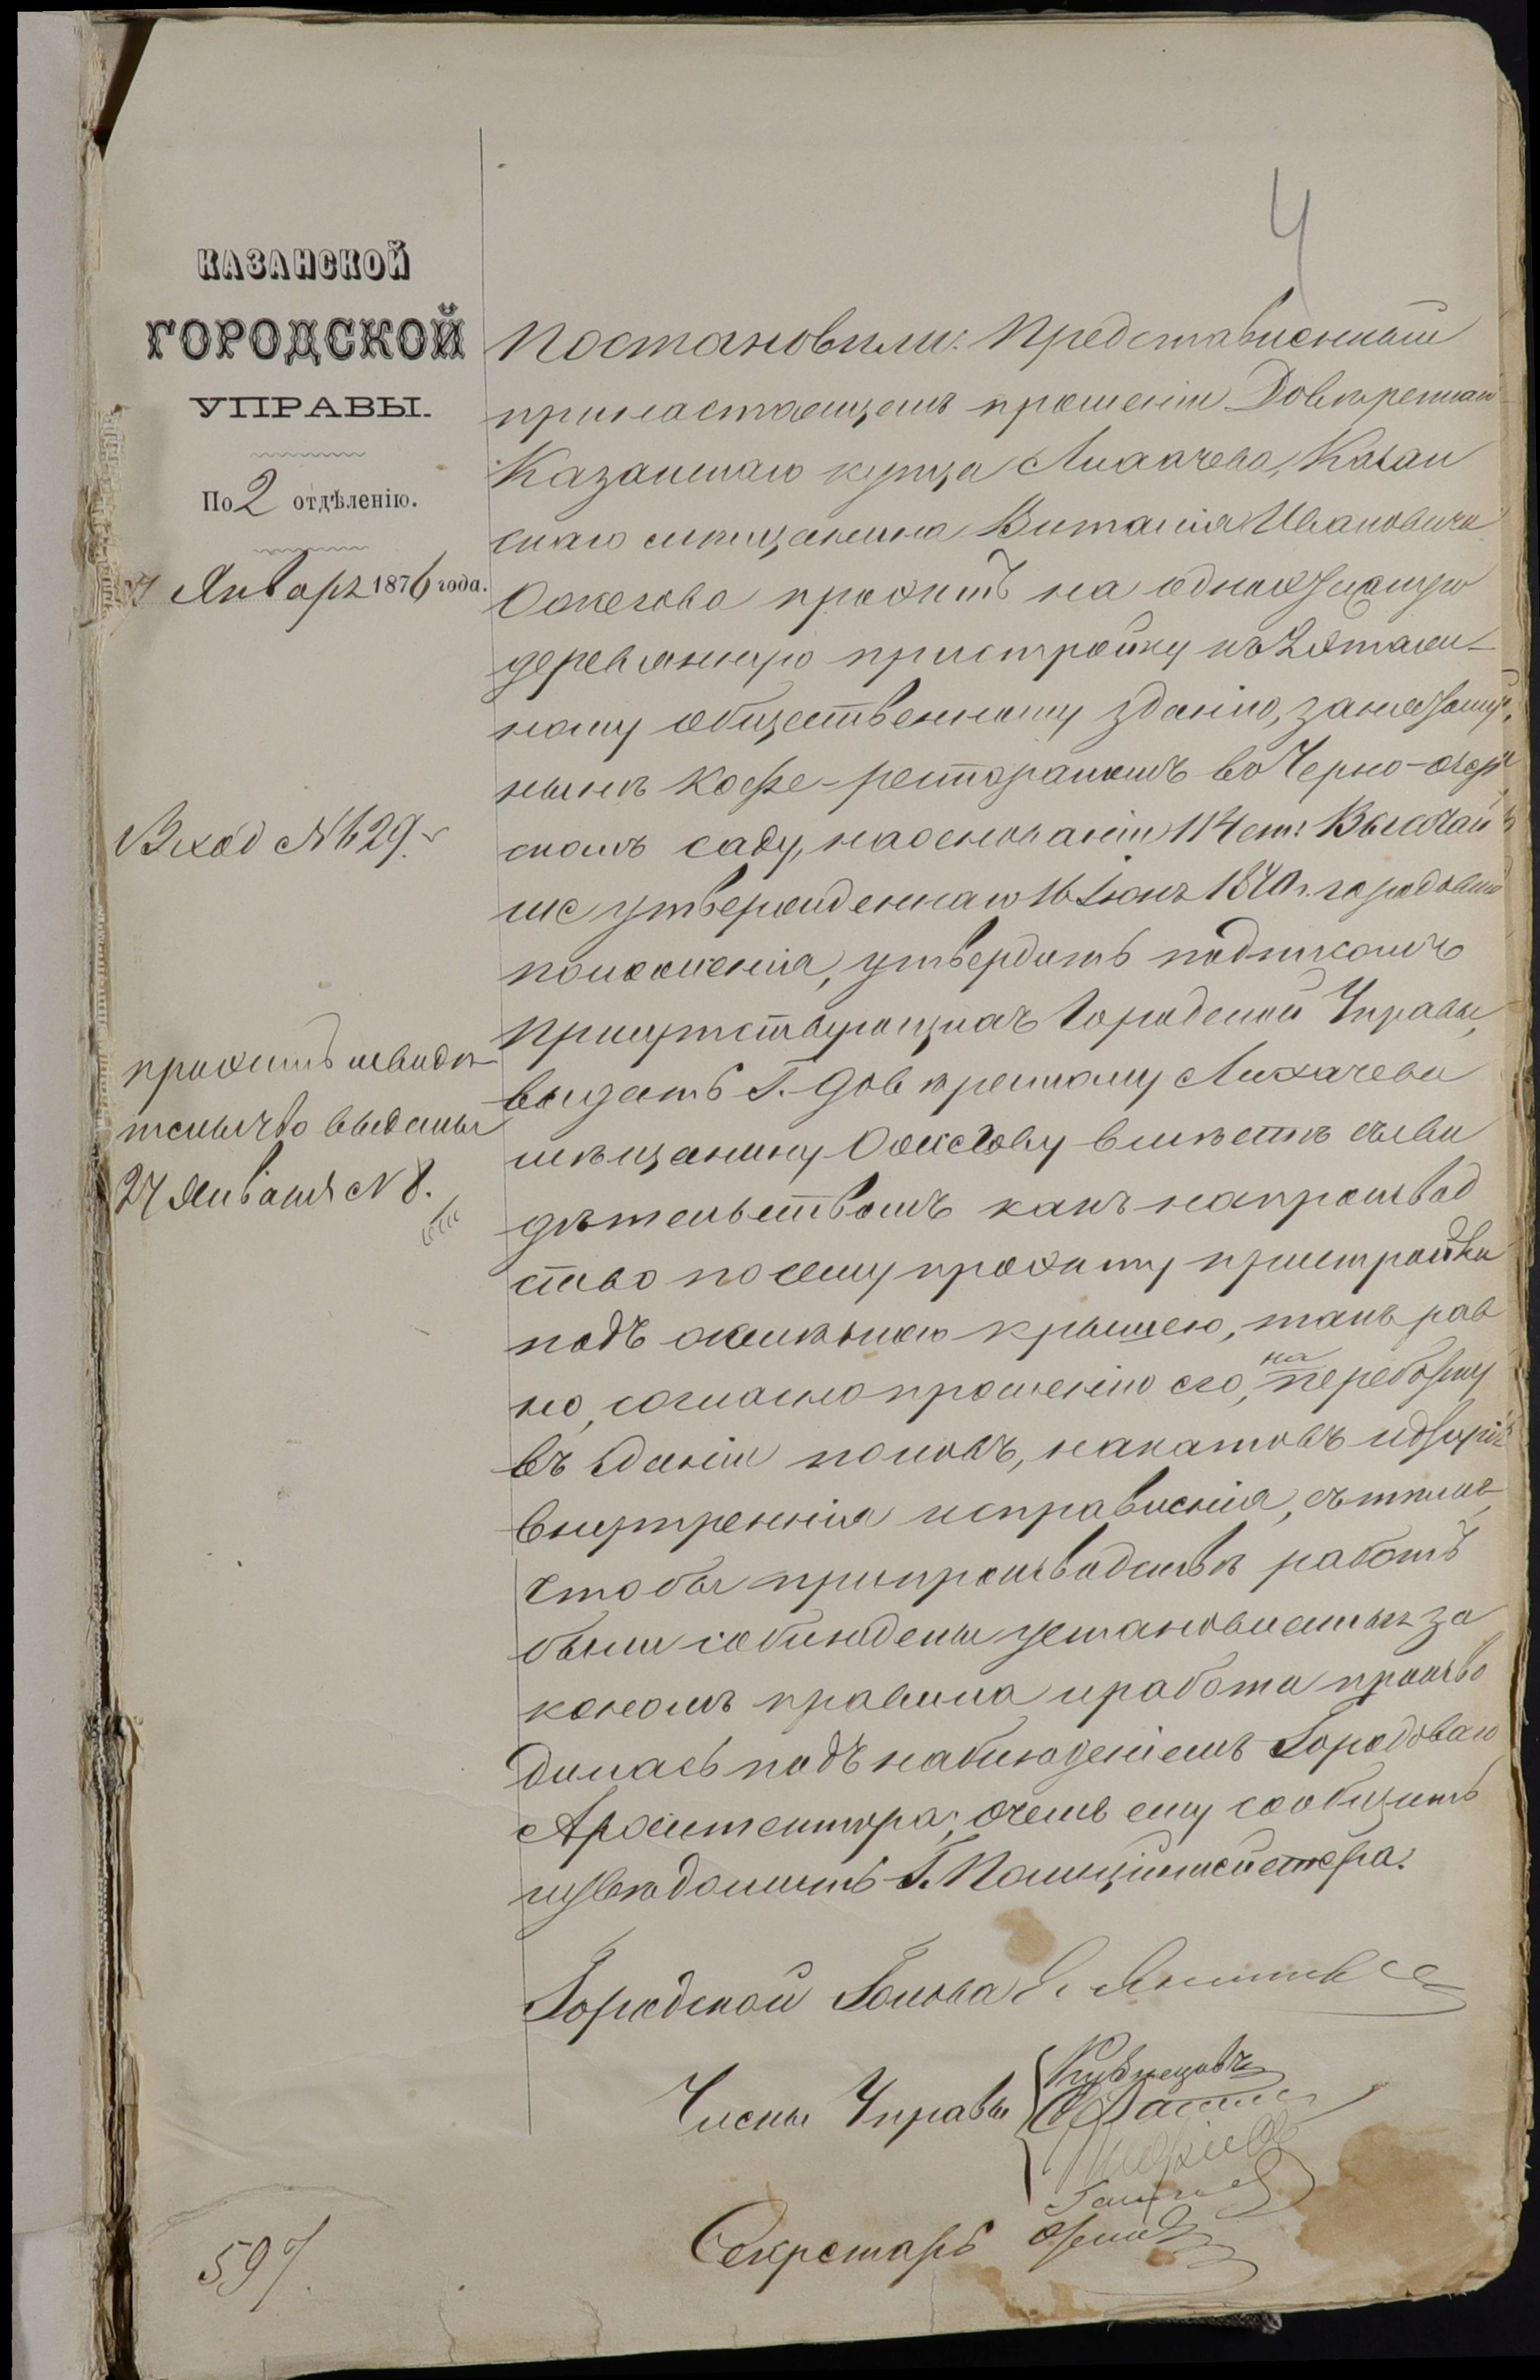 4
КАЗАНСКОЙ
ГОРОДСКОЙ
УПРАВЫ.
По 2 отдѣленію.
Январѣ 1876 года.
Вход № 29.
проектъ и свидѣ-
тельство выданы
24 Января № 8.
Постановили: Представленный
при настоящемъ прошеніи Довѣреннаго
Казанскаго купца Лихачева, Казан
скаго мѣщанина Виталія Ивановича
Ожегова проектъ на одноэтажную
деревянную пристройку къ 2хэтаж-
ному общественному зданію, занятому
нынѣ Кофе-рестораномъ въ Черно-озер
скомъ саду, на основаніи 114 ст: Высочай
ше утвержденнаго 16 Іюнѣ 1870 г. городоваго
положенія, утвердить подписомъ
присутствующихъ Городской Управы,
выдать Г. довѣренному Лихачева
мѣщанину Ожегову вмѣстѣ съ сви
дѣтельствомъ какъ на производ
ство по сему проэкту пристройки
подъ желѣзною крышею, такъ рав
но, согласно прошенію его, на переборку
въ зданіи половъ, накатовъ и другія
внутреннія исправленія, съ тѣмъ,
чтобы при производствѣ работъ
были соблюдены установленныя за
кономъ правила и работа произво
дилась подъ наблюденіемъ Городоваго
Архитектора; о чемъ ему сообщить
и увѣдомить Г. Полиціймейстера.
Городской Голова Э. Янишевск
Члены Управы
Кузнецовъ
Секретарь
597.